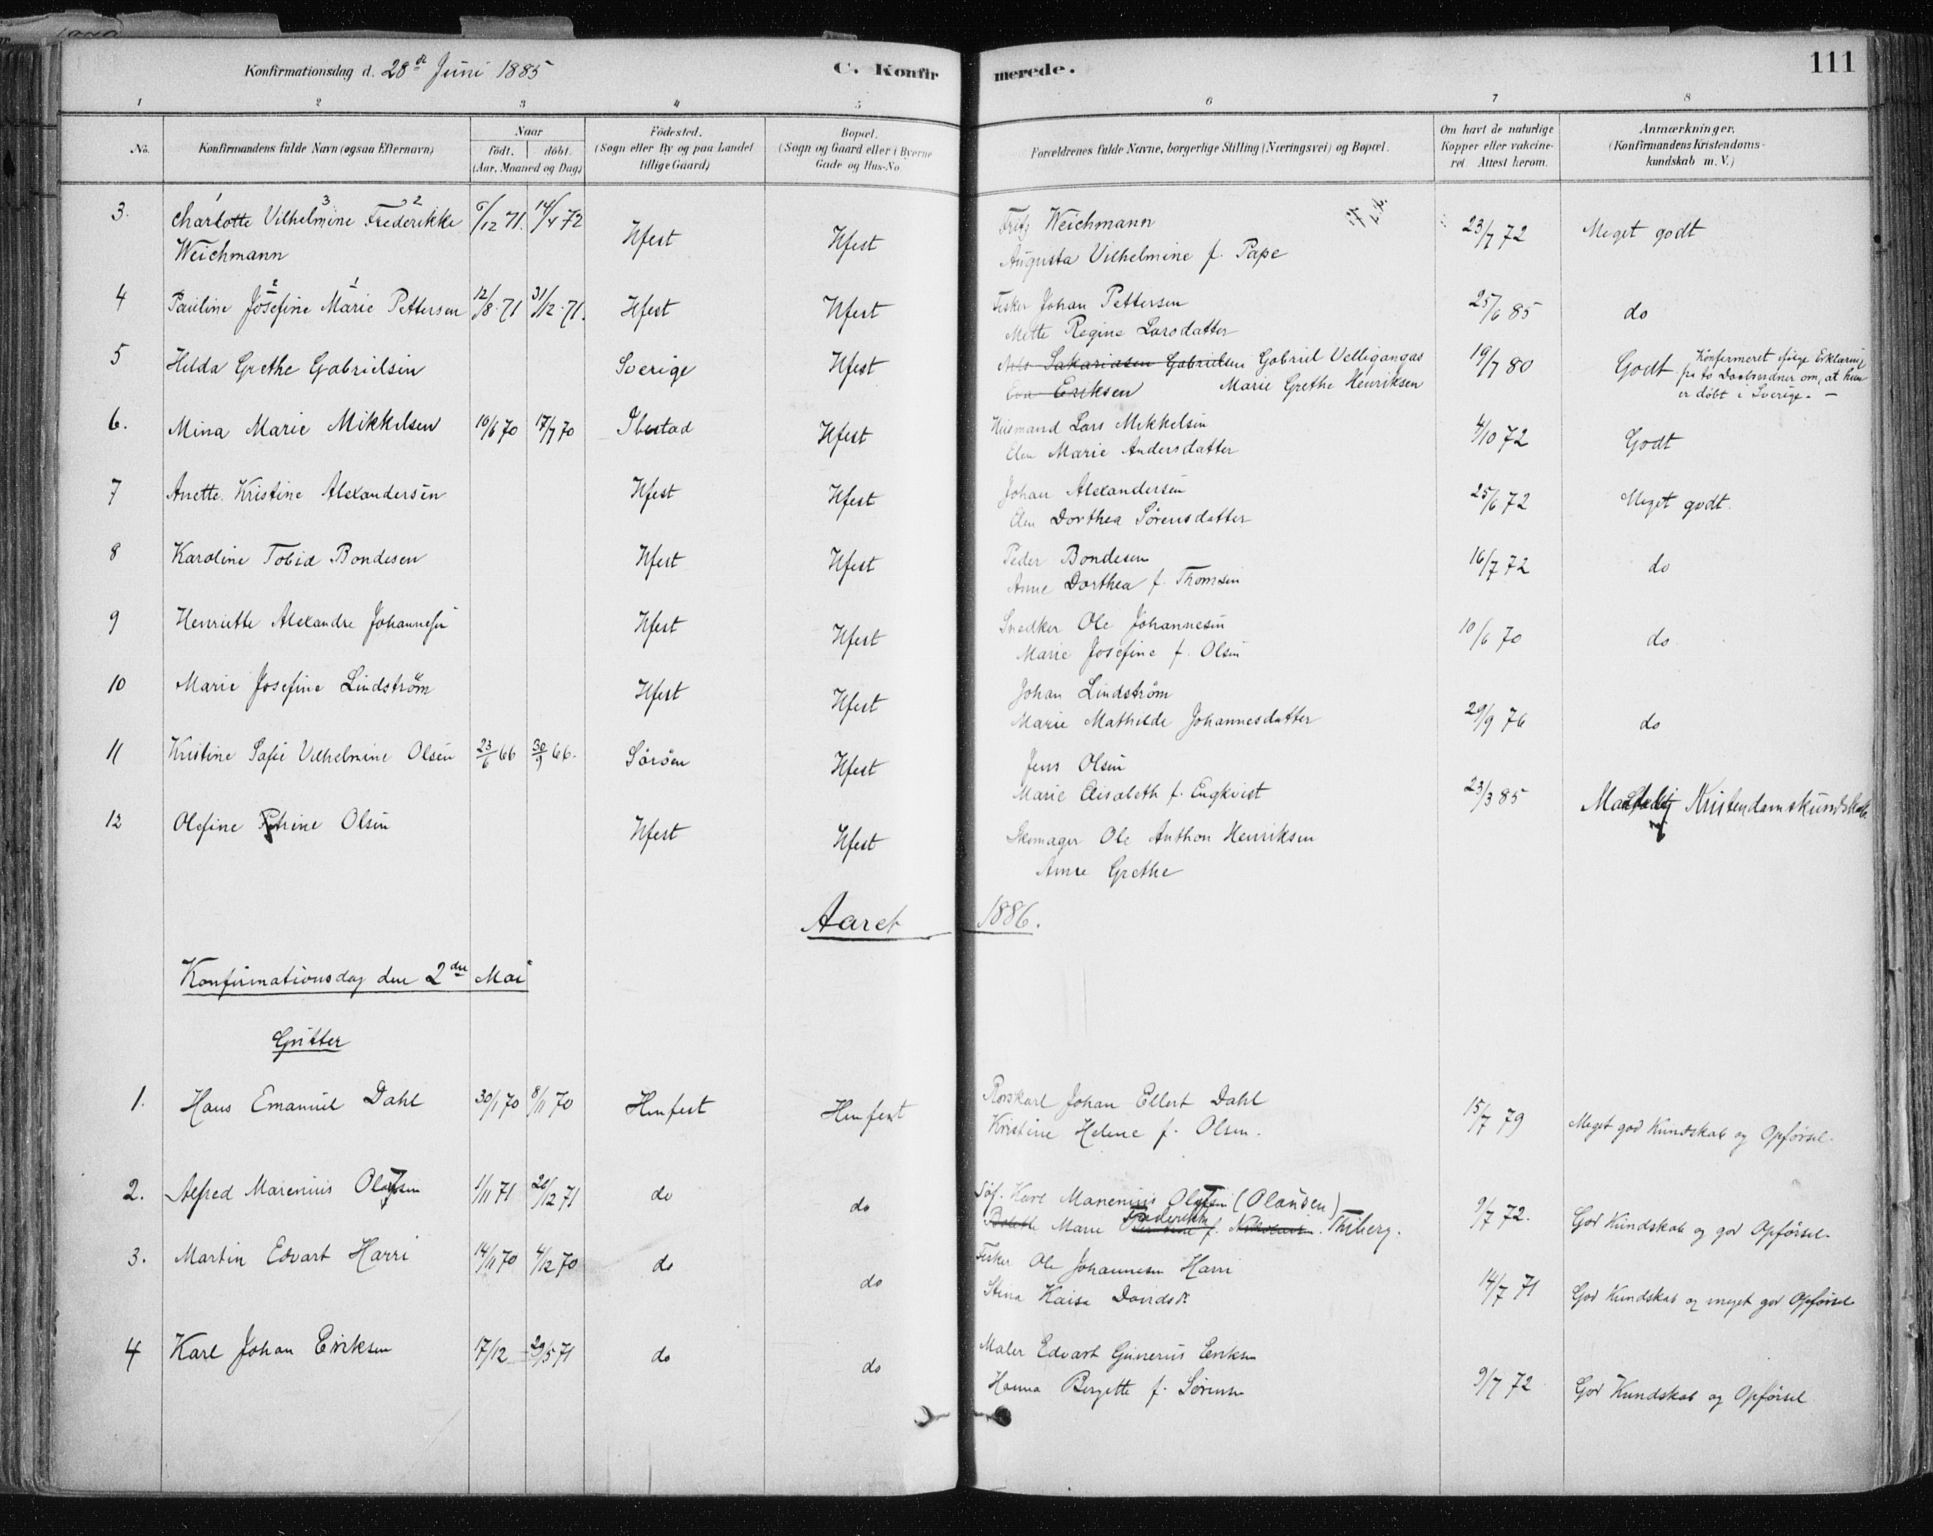 111
Konfirmationsdag d. 28de Juni 1885 C. Konfirmerede.
1 2 3 4 5 6 7 8
No. Konfirmandens fulde Navn (ogsaa Efternavn) Naar født. døbt. (Aar, Maaned og Dag) Fødested. (Sogn eller By og paa Landet tillige Gaard) Bopæl. (Sogn og Gaard eller i Byerne Gade og Hus-No Forældrenes fulde Navne, borgerlige Stilling (Næringsvei) og Bopæl. Om havt de naturlige Kopper eller vakcineret. Attest herom. Anmærkninger. (Konfirmandens Kristendomskundskab m. V.)
3. Charlotte Vilhelmine Frederikke 6/12 71. 14/4 72 Hfest Hfest Fritz Weichmann 23/7 72 Meget godt
Weichmann Augusta Vilhelmine f. Pape
4 Pauline Josefine Marie Pettersen 12/8 71 31/12 71. Hfest Hfest Fisker Johan Pettersen 25/6 85 do
Mette Regine Larsdatter
5 Hilda Grethe Gabrielsen Sverige Hfest Nils Sakariasen Gabrielsen Gabriel Velligangas 19/7 80 Godt Konfirmeret ifølge Erklæring
Eva Eriksen Marie Grethe Henriksen fra to Daabsvidner om, at hun
er døbt i Sverige.
6. Mina Marie Mikkelsen 16/6 70 17/7 70 Ibestad Hfest Husmand Lars Mikkelsen 4/10 72 Godt
Elen Marie Andersdatter
7 Anette Kristine Alexandersen Hfest Hfest Johan Alexandersen 25/6 72 Meget godt.
Elen Dorthea Sørensdatter
8 Karoline Tobia Bondesen Hfest Hfest Peder Bondesen 16/7 72 do
Anne Dorthea f. Thomsen
9 Henriette Alexandre Johannesen Hfest Hfest Snedker Ole Johannesen 10/6 70 do
Marie Josefine f. Olsen
10 Marie Josefine Lindstrøm Hfest Hfest Johan Lindstrøm 29/9 76 do
Marie Mathilde Johannesdatter
11 Kristine Sofie Vilhelmine Olsen 23/6 66 30/9 66. Sørøen Hfest Jens Olsen 23/3 85 Kristendomskundskab
Marie Elisabeth f. Engkvist
12 Olefine Petrine Olsen Hfest Hfest Skomager Ole Anthon Henriksen
Anne Grethe
Aaret 1886.
Konfirmationsdag den 2den Mai
Gutter
1. Hans Emanuel Dahl 30/1 70 8/11 70 Hmfest Hmfest Rorskarl Johan Ellert Dahl 15/7 79 Meget god Kundskab og Opførsel.
Kristine Helene f. Olsen.
2. Alfred Marenius Olafsen 1/11 71 26/12 71 do do Søf. Karl Marenius Olafsen (Olausen) 9/7 72. God Kundskab og god Opførsel.
Bolette Marie Frederikke f. Nikolaisen. Thiberg.
3. Martin Edvart Harri 14/11 70 4/12 70 do do Fisker Ole Johannesen Harri 14/7 71 God Kundskab og meget god Opførsel
Stina Kaisa Davidsdt.
4 Karl Johan Eriksen 17/12 29/5 71 do do Maler Edvart Gunerius Eriksen 9/7 72 God Kundskab og Opførsel
Hanna Bergette f. Sørensen